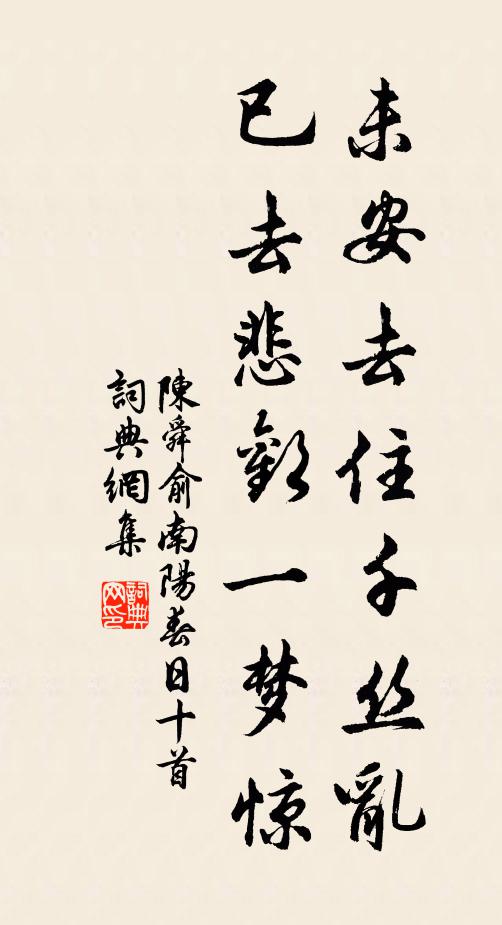 未安去住千丝亂
已去悲歡一梦惊
陳舜俞南陽春日十首
詞典網集
詞典网印